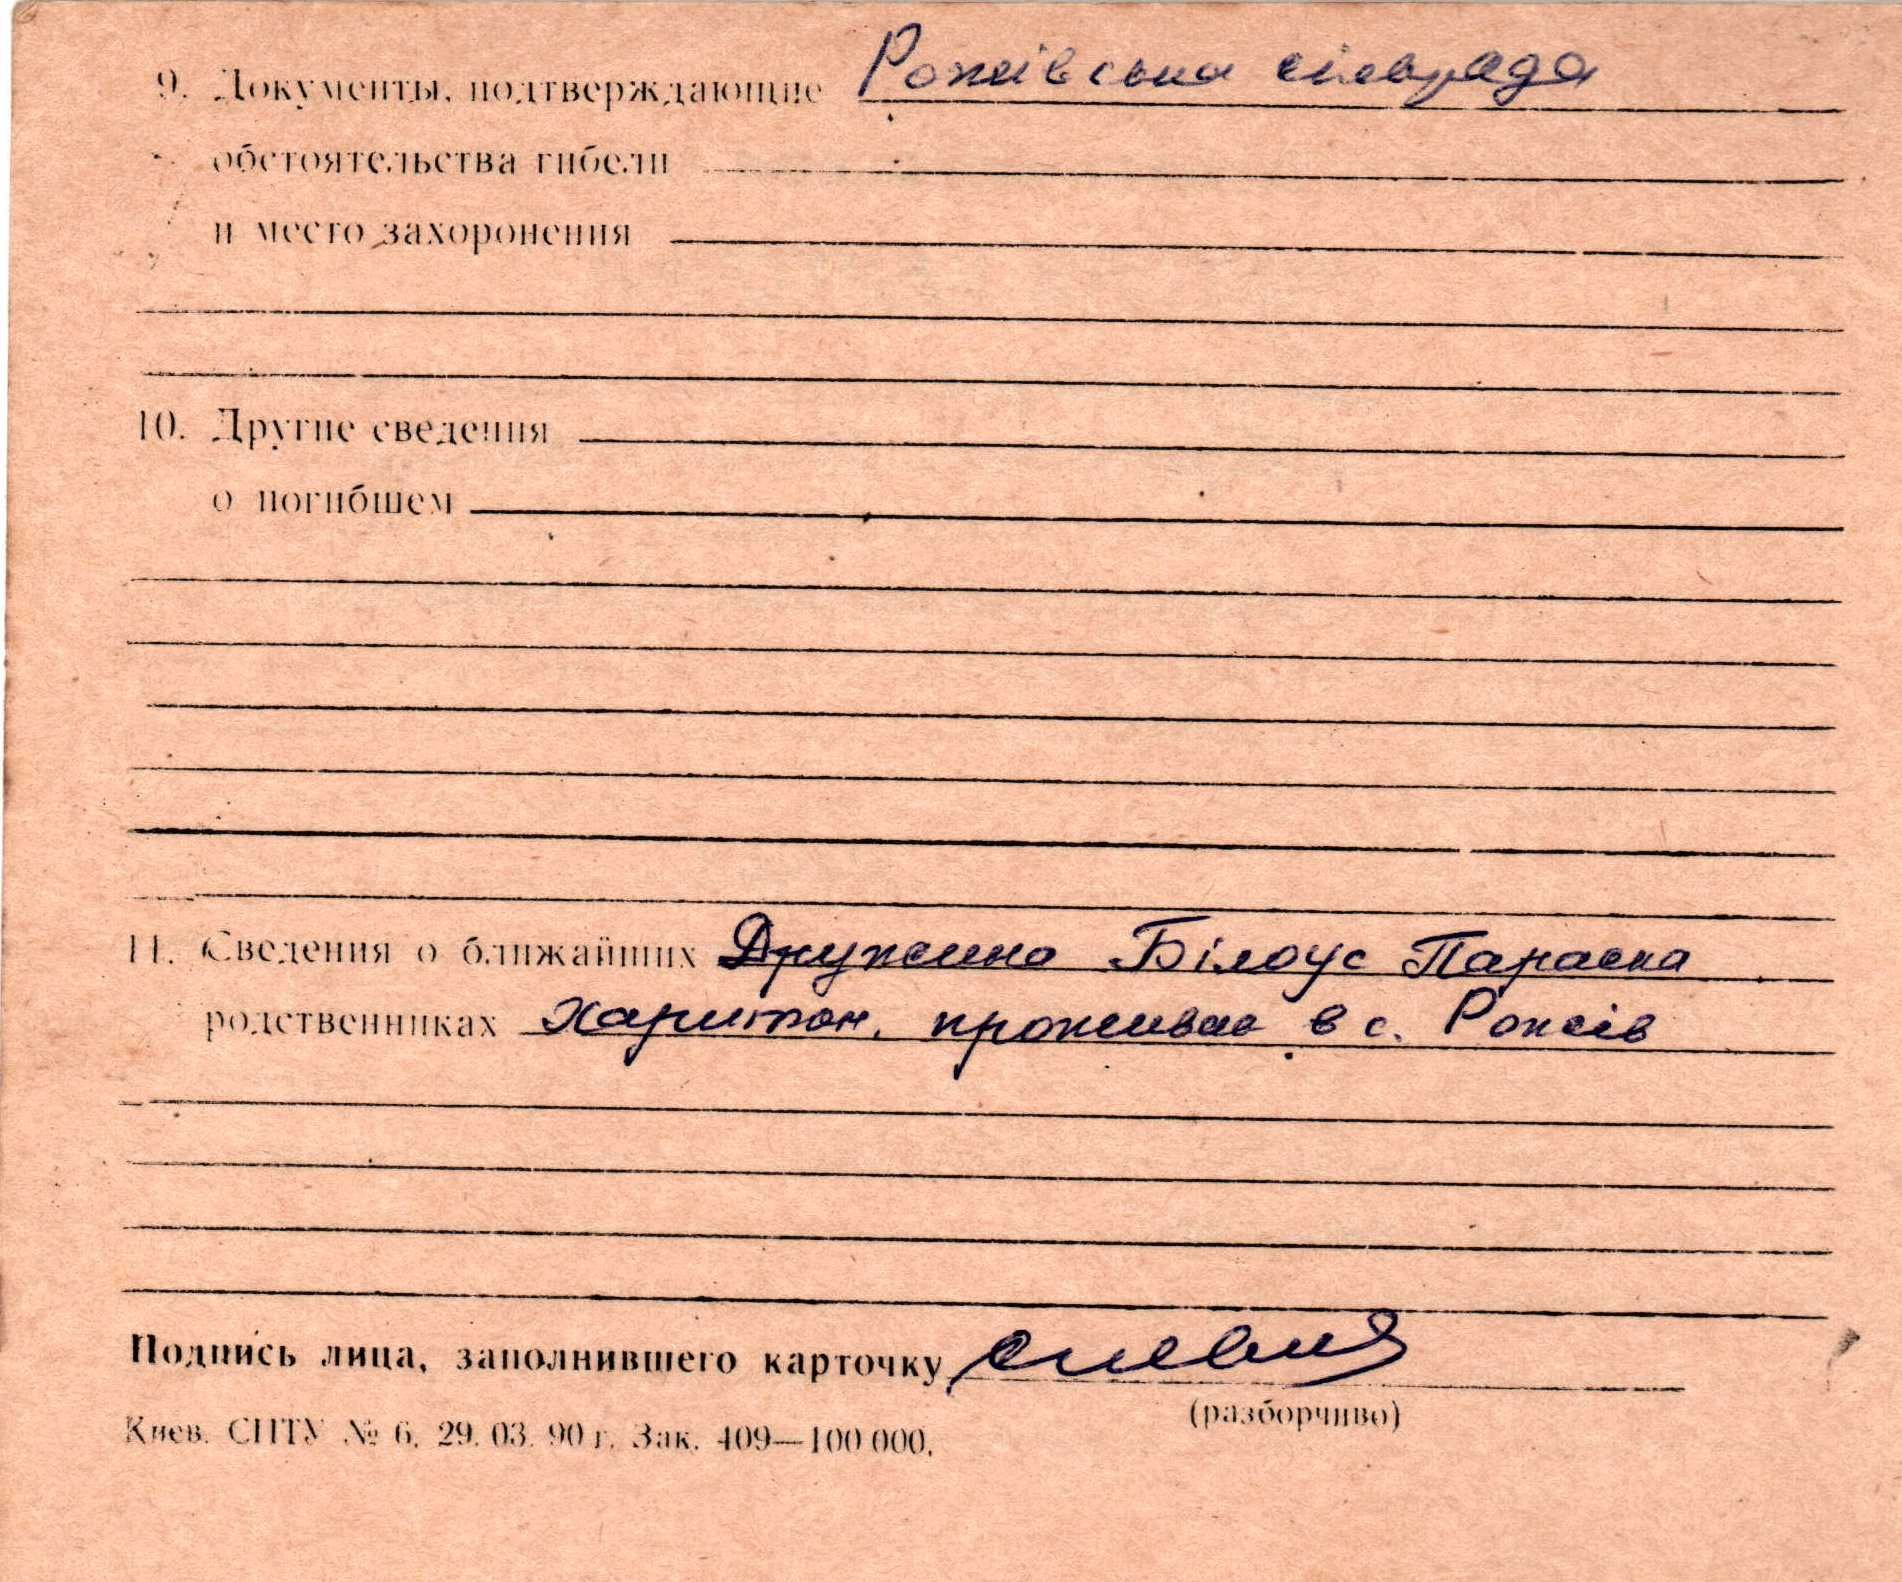 9. Документы, подтверждающие Рожівська сільрада
обстоятельства гибели
и место захоронения
10. Другие сведения
о погибшем
11. Сведения о ближайших Дружина Білоус Параска
родственниках Харитон. проживає в с. Рожів
Подпись лица, заполнившего карточку
(разборчиво)
Киев. СПТУ № 6. 29. 03. 90 г. Зак. 409—100 000.